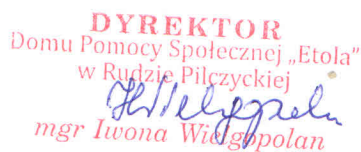 DYREKTOR
Domu Pomocy Społecznej „Etola"
w Rudzie Pilczyckiej
mgr Iwona Wielgopolan